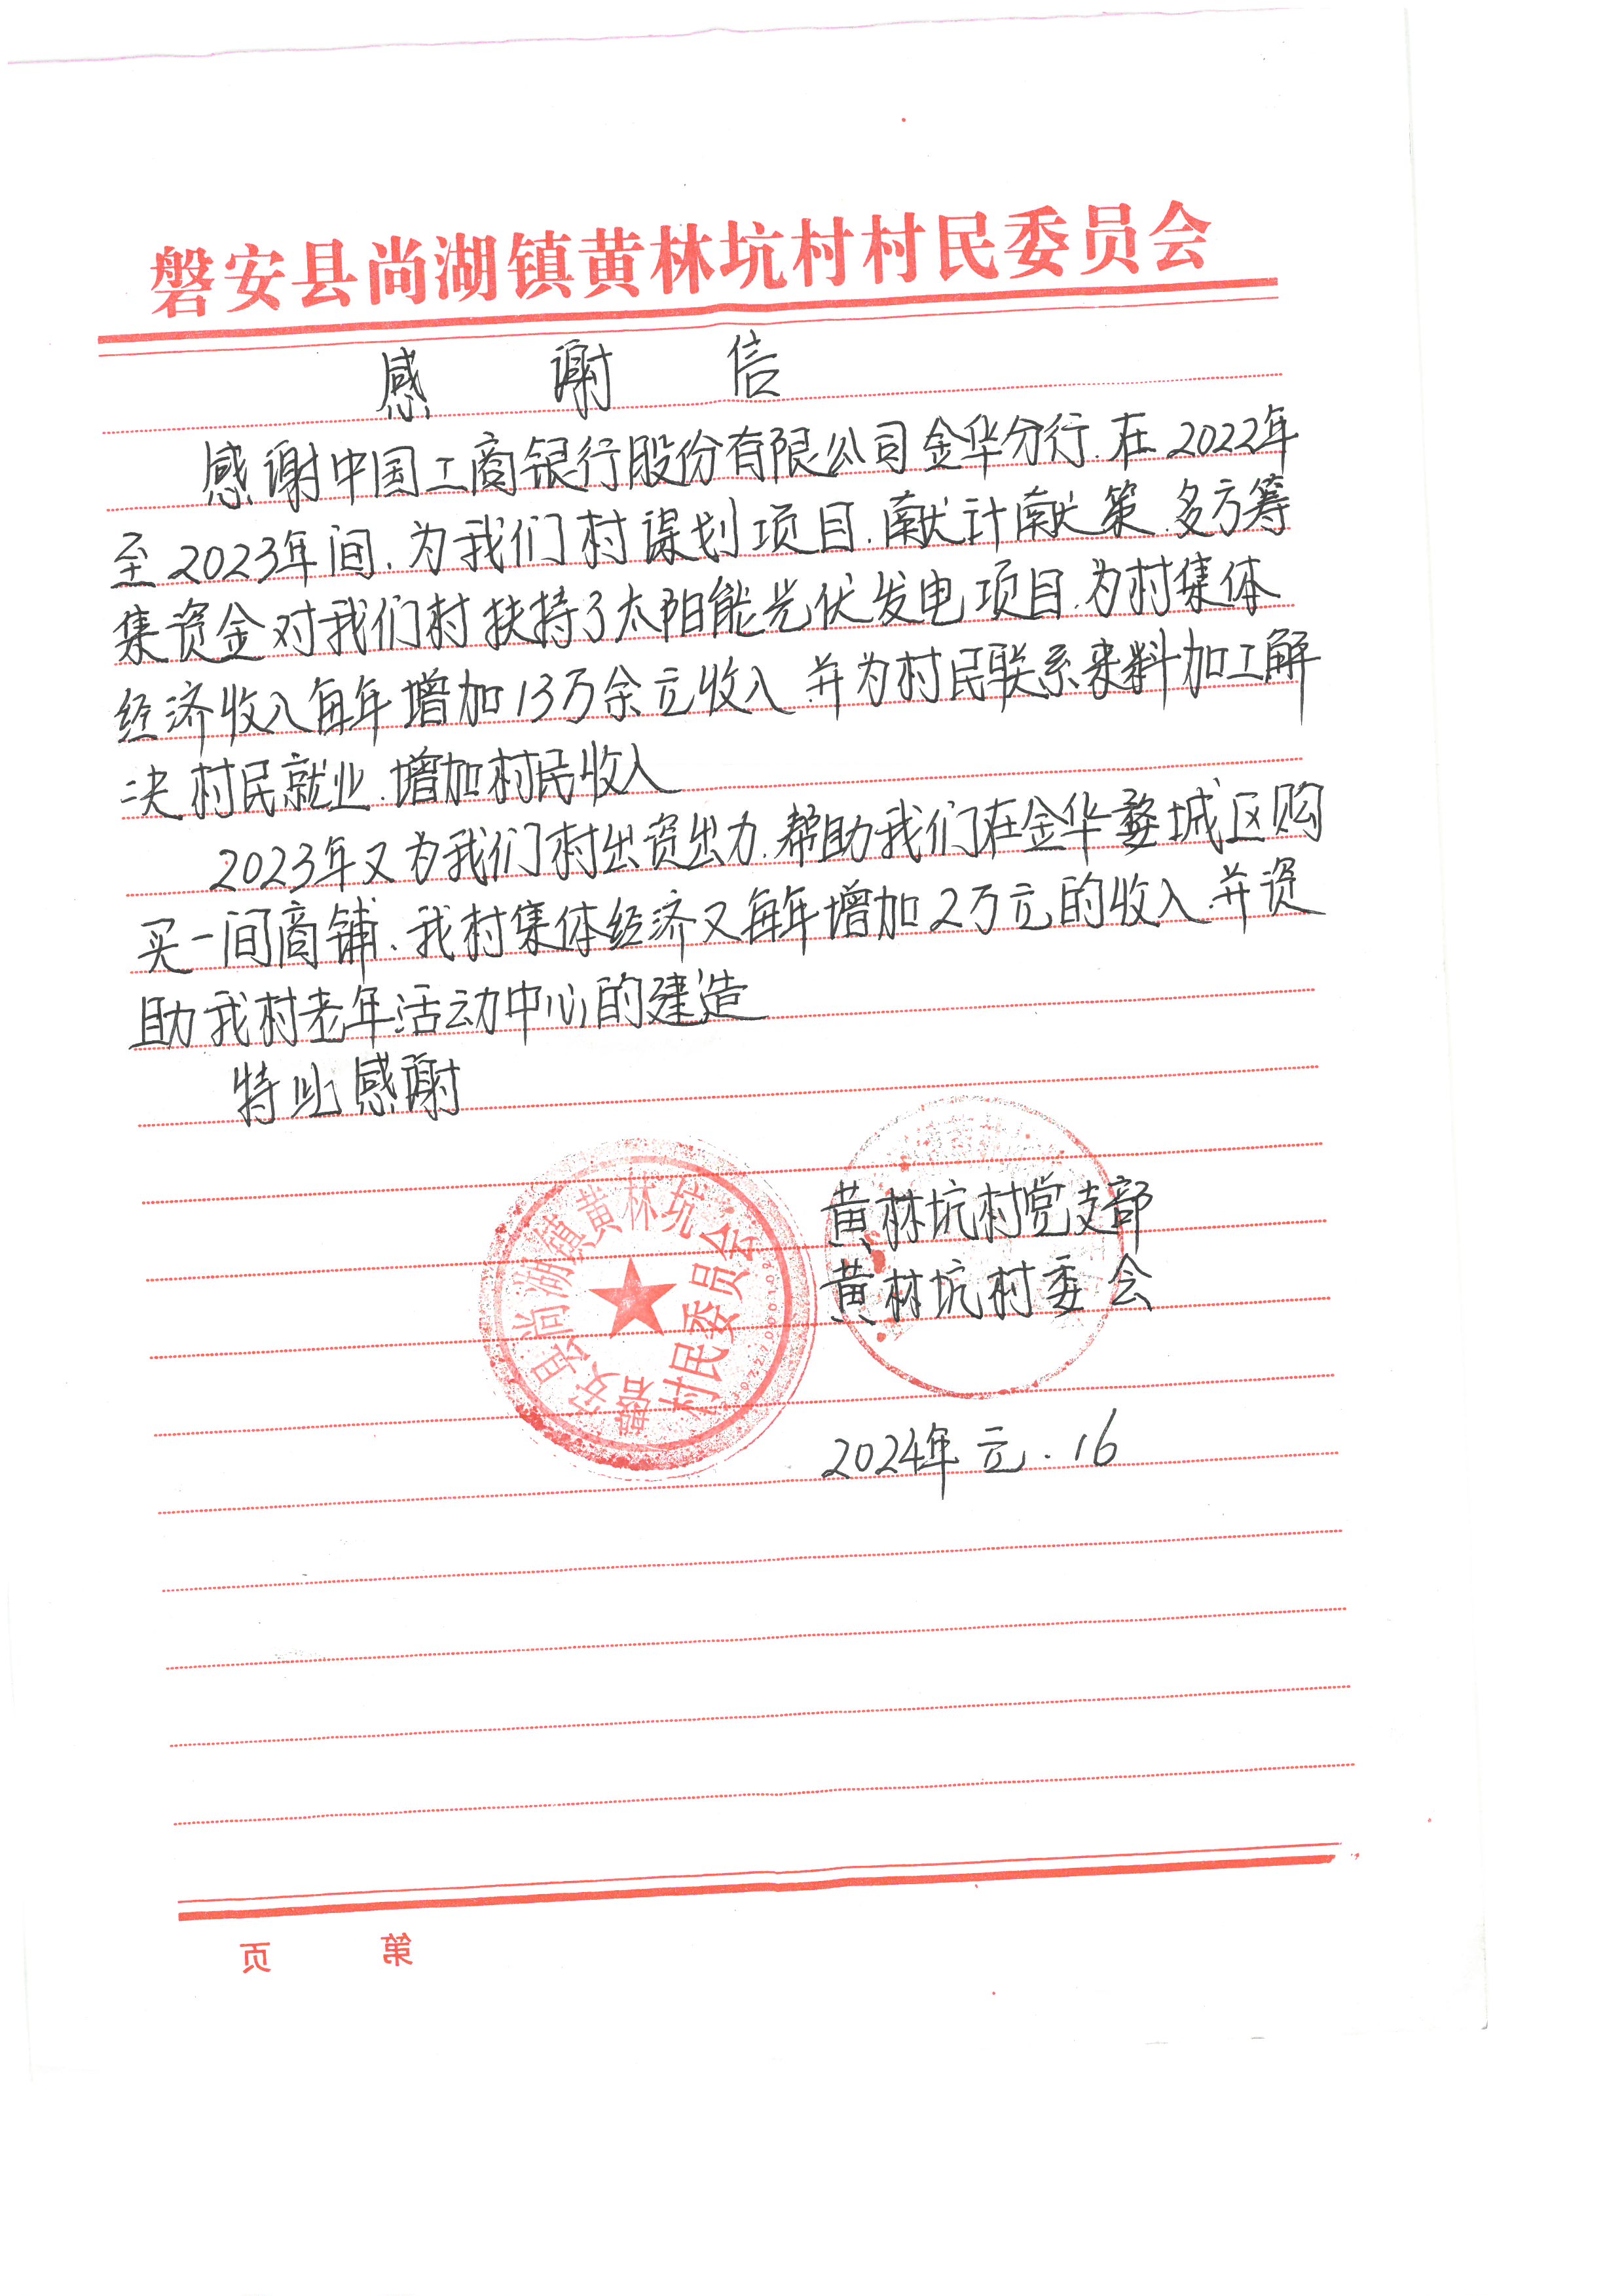 磐安县尚湖镇黄林坑村村民委员会
感谢信
感谢中国工商银行股份有限公司金华分行.在2022年
至2023年间.为我们村谋划项目.献计献策.多方筹
集资金对我们村扶持了太阳能光伏发电项目.为村集体
经济收入每年增加13万余元收入.并为村民联系来料加工解
决村民就业.增加村民收入
2023年又为我们村出资出力.帮助我们在金华婺城区购
买一间商铺.我村集体经济又每年增加2万元的收入.并资
助我村老年活动中心的建造
特此感谢
磐安县尚湖镇黄林坑
村民委员会
黄林坑村党支部
黄林坑村委会
2024年元.16
页 第